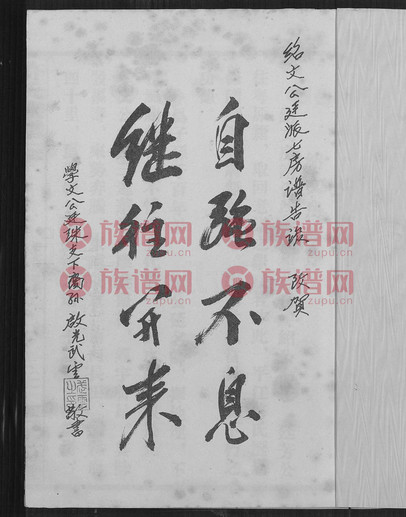 绍文公廷派七房谱告竣 致贺
自强不息
继往开来
学文公廷珠支下裔孙 启光武生 敬书
族谱网
zupu.cn
族谱网
zupu.cn
族谱网
zupu.cn